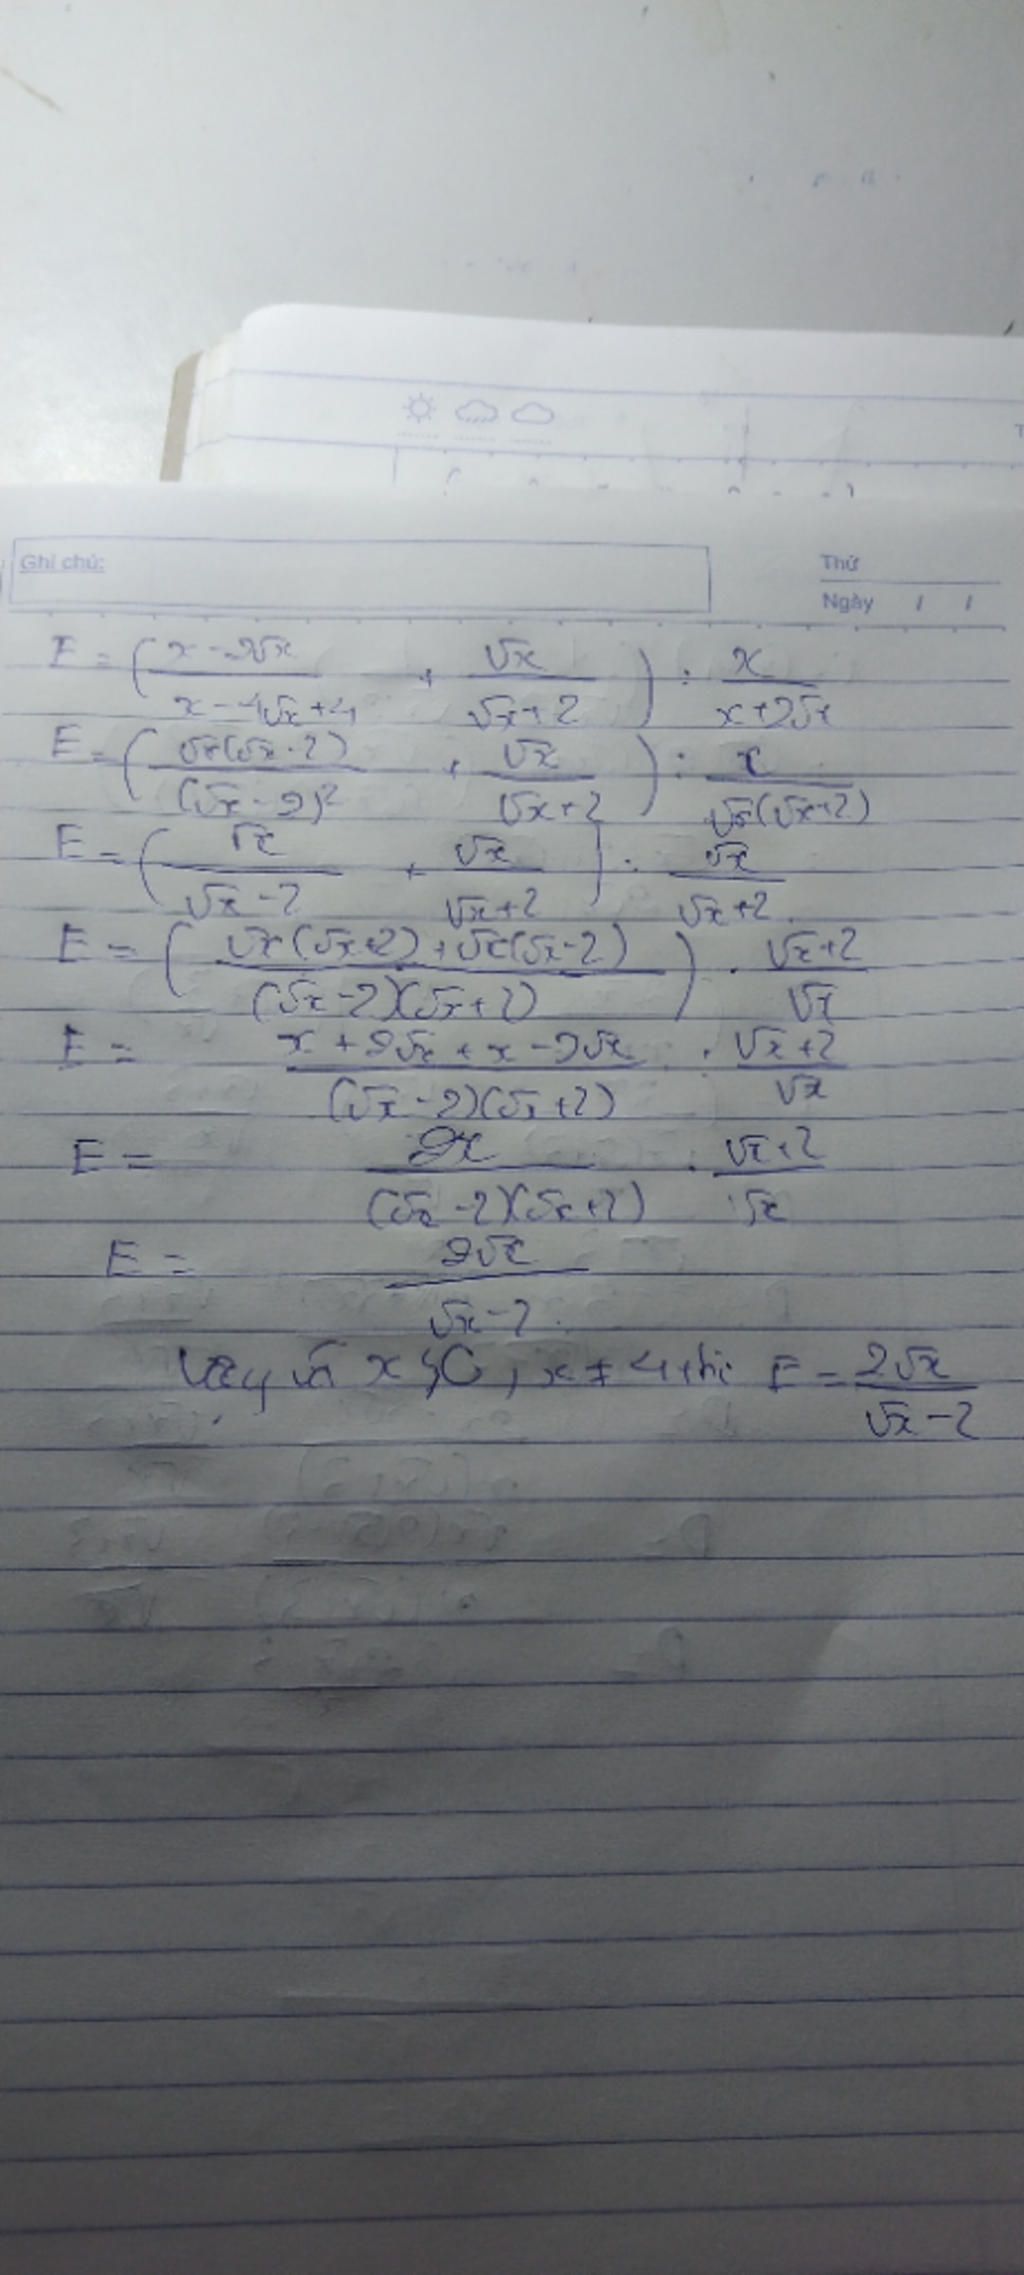 Ghi chú:
Thứ
Ngày / /
E = ( (x - 2√x)/(x - 4√x + 4) + √x/(√x + 2) ) : x/(x + 2√x)
E = ( √x(√x - 2)/(√x - 2)² + √x/(√x + 2) ) : x/(√x(√x + 2))
E = ( √x/(√x - 2) + √x/(√x + 2) ) : √x/(√x + 2)
E = ( (√x(√x + 2) + √x(√x - 2))/((√x - 2)(√x + 2)) ) . (√x + 2)/√x
E = (x + 2√x + x - 2√x)/((√x - 2)(√x + 2)) . (√x + 2)/√x
E = 2x/((√x - 2)(√x + 2)) . (√x + 2)/√x
E = 2√x/(√x - 2)
Vậy với x > 0, x ≠ 4 thì E = 2√x/(√x - 2)